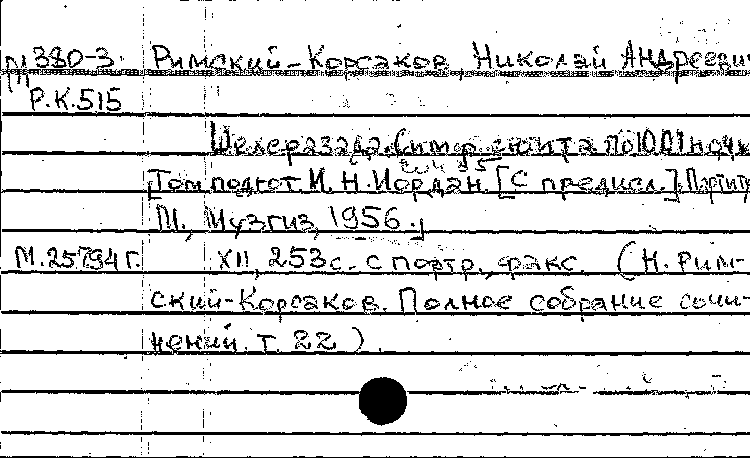 М 380-3. Римский-Корсаков, Николай Андреевич
Р.К.515
Шехеразада. Симф. сюита по 1001 ночи
соч 35
[Том подгот. И. Н. Иордан. [С предисл.]. Партитура
М., Музгиз, 1956.]
М.25794г. XII, 253с. с портр., факс. (Н. Рим-
ский-Корсаков. Полное собрание сочи-
нений. т. 22).